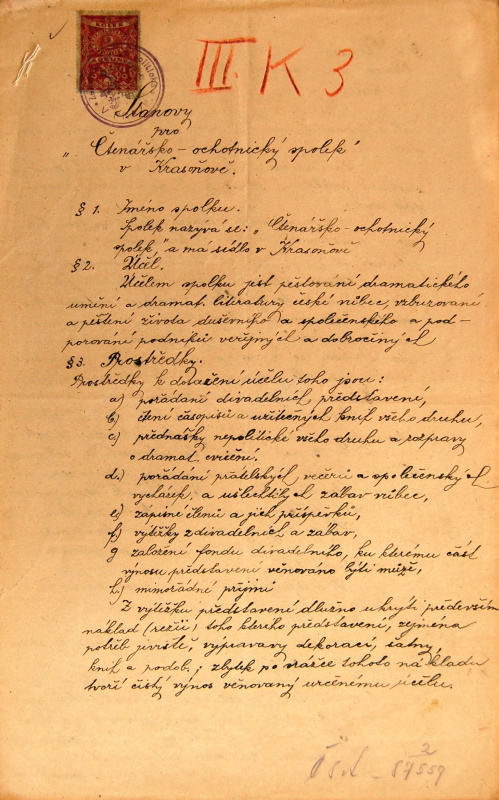 III. K 3
Stanovy
pro
„Čtenářsko-ochotnický spolek“
v Krasoňově.
§ 1. Jméno spolku.
Spolek nazývá se: „Čtenářsko-ochotnický
spolek,“ a má sídlo v Krasoňově
§ 2. Účel.
Účelem spolku jest pěstování dramatického
umění a dramat. literatury české vůbec, vzbuzování
a pěstění života duševního a společenského a pod-
porování podniků veřejných a dobročiných
§ 3. Prostředky.
Prostředky k dosažení účelu toho jsou:
a) pořádání divadelních představení,
b) čtení časopisů a užitečných knih všeho druhu,
c) přednášky nepolitické všeho druhu a rozpravy
o dramat. cvičení.
d.) pořádání přátelských večerů a společenských
vycházek, a ušlechtilých zábav vůbec,
e) zápisné členů a jich příspěvků,
f) výtěžky z divadelních a zábav,
g založení fondu divadelního, ku kterému část
výnosu představení věnováno býti může,
h.) mimořádné příjmi
Z výtěžku představení dlužno uhrýti především
náklad (režii) toho kterého představení, zejména
potřeb jeviště, výpravy dekorací, šatny,
knih a podob.; zbytek po srážce tohoto nákladu
tvoří čistý výnos věnovaný určenému účelu.
2
87559